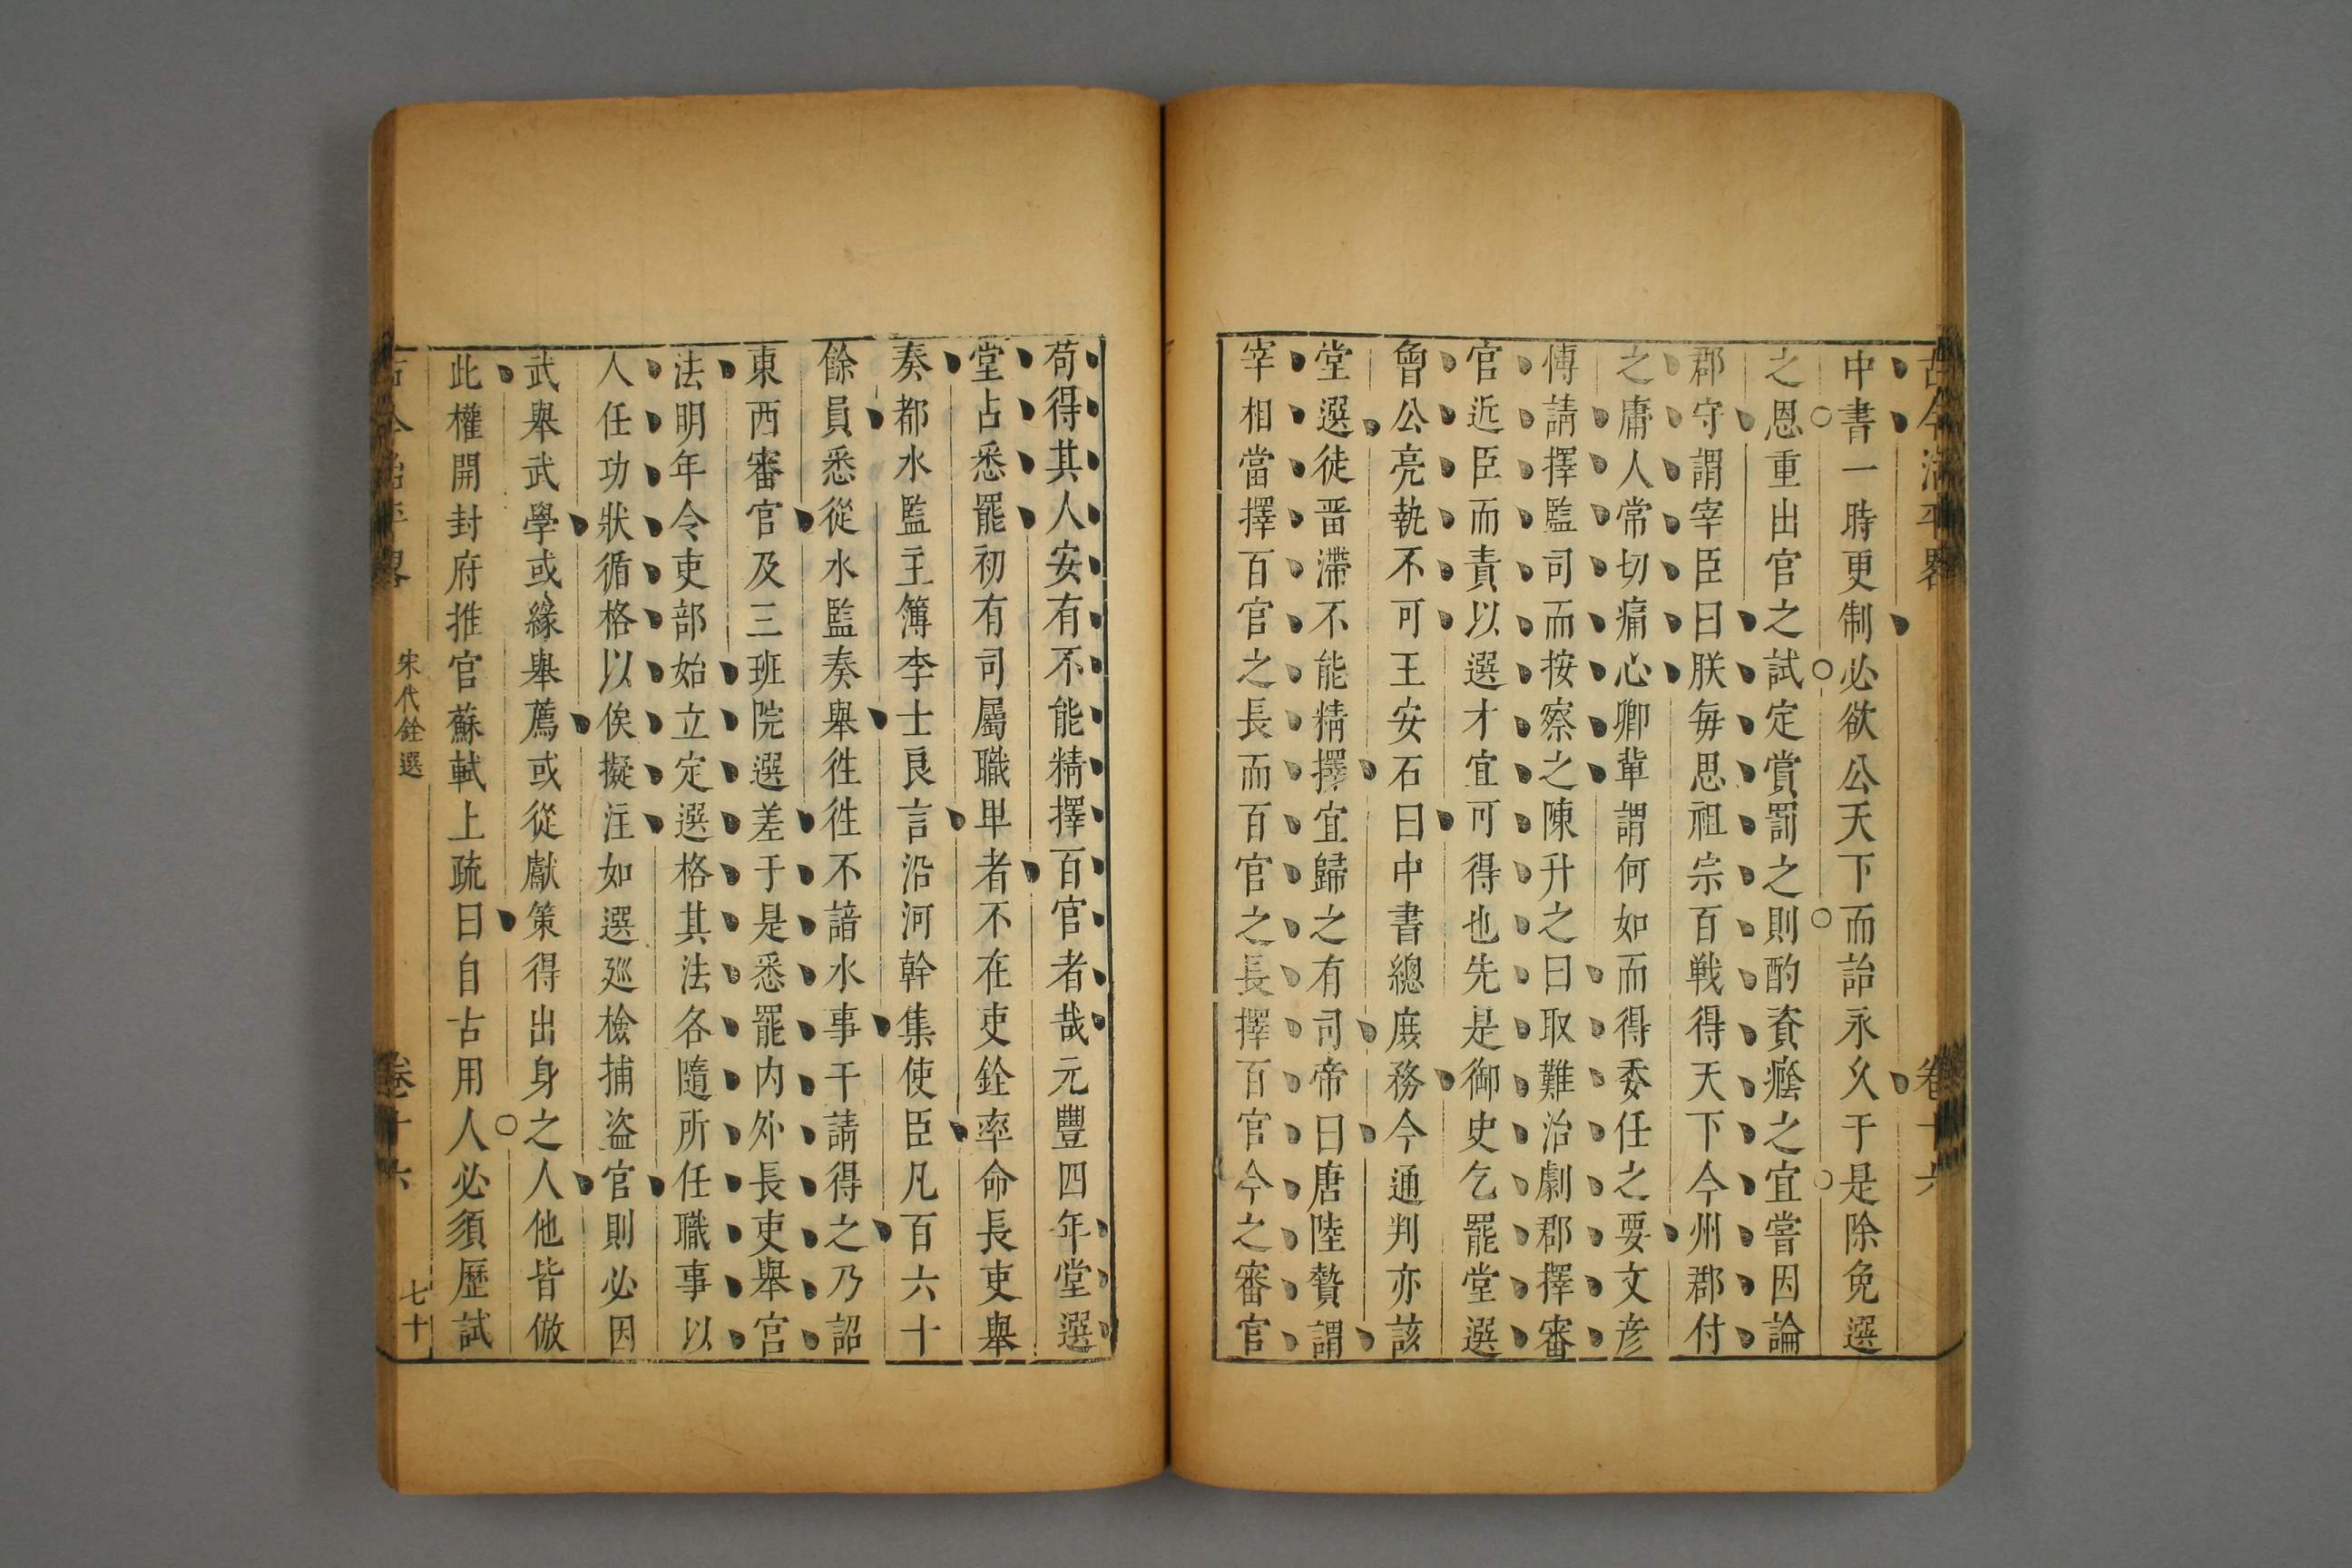 古今治平畧　卷十六
中書一時更制必欲公天下而詒永久于是除免選
之恩重出官之試定賞罰之則酌資癃之宜嘗因論
郡守謂宰臣曰朕每思祖宗百戰得天下今州郡付
之庸人常切痛心卿軰謂何如而得委任之要文彦
博請擇監司而按察之陳升之曰取難治劇郡擇審
官近臣而責以選才宜可得也先是御史乞罷堂選
曾公亮執不可王安石曰中書總庶務今通判亦該
堂選徒畱滯不能精擇宜歸之有司帝曰唐陸贄謂
宰相當擇百官之長而百官之長擇百官今之審官
苟得其人安有不能精擇百官者哉元豐四年堂選
堂占悉罷初有司屬職卑者不在吏銓率命長吏舉
奏都水監主簿李士良言沿河幹集使臣凡百六十
餘員悉從水監奏舉徃徃不諳水事干請得之乃詔
東西審官及三班院選差于是悉罷内外長吏舉官
法明年令吏部始立定選格其法各隨所任職事以
人任功狀循格以俟擬注如選廵檢捕盜官則必因
武舉武學或緣舉薦或從獻策得出身之人他皆倣
此權開封府推官蘇軾上疏曰自古用人必須歷試
古今治平畧　宋代銓選　卷十六　七十